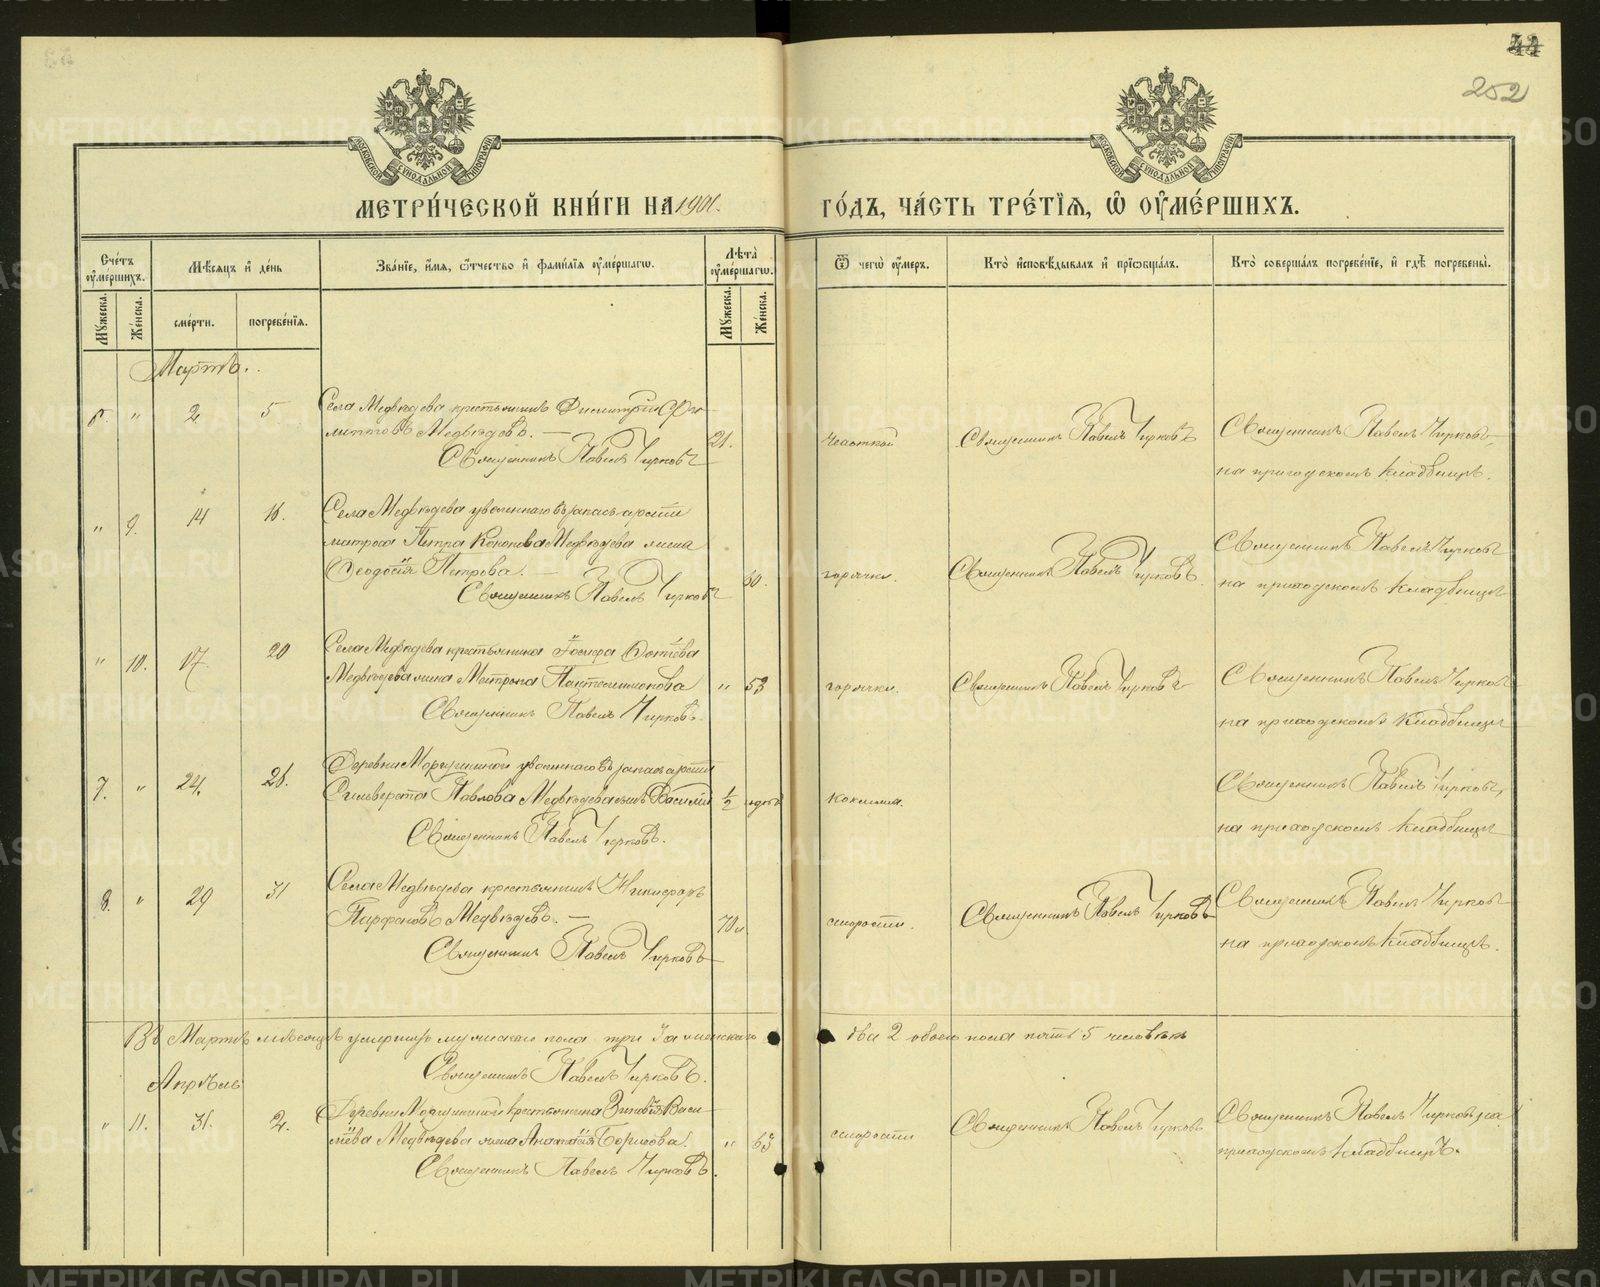 44
252
МОСКОВСКОЙ СѴНОДАЛЬНОЙ ТИПОГРАФІИ
МОСКОВСКОЙ СѴНОДАЛЬНОЙ ТИПОГРАФІИ
МЕТРИ́ЧЕСКОЙ КНИ́ГИ НА 1901.
ГО́ДЪ, ЧА́СТЬ ТРЕ́ТІЯ, Ѿ ОУМЕ́РШИХЪ.
Сче́тъ оуме́ршихъ.
Мѣ́сяцъ и де́нь
Зва́нїе, и́мя, ѻ́тчество и фами́лїя оуме́ршагѡ.
Лѣ́та оуме́ршагѡ.
Ѿ чегѡ̀ оу́меръ.
Кто̀ исповѣ́дывалъ и прїѡбща́лъ.
Кто̀ соверша́лъ погребе́нїе, и гдѣ̀ погребены̀.
Му́жеска.
Же́нска.
сме́рти.
погребе́нїя.
Му́жеска.
Же́нска.
Мартъ.
6. " 2 5
Села Медвѣдева крестьянинъ Димитрій Фи-
липповъ Медвѣдевъ. —
Священникъ Павелъ Чирковъ
21.
чахоткой
Священникъ Павелъ Чирковъ
Священникъ Павелъ Чирковъ
на приходскомъ кладбищѣ.
" 9. 14 16.
Села Медвѣдева уволеннаго въ запасъ арміи
матроса Петра Кононова Медвѣдева жена
Ѳеодосія Петрова. —
Священникъ Павелъ Чирковъ
60.
горячки.
Священникъ Павелъ Чирковъ.
Священникъ Павелъ Чирковъ
на приходскомъ кладбищѣ
" 10. 17. 20
Села Медвѣдева крестьянина Іосифа Фотіева
Медвѣдева жена Матрона Пантелеимонова
Священникъ Павелъ Чирковъ.
" 53
горячки.
Священникъ Павелъ Чирковъ
Священникъ Павелъ Чирковъ
на приходскомъ кладбищѣ
7. " 24. 26.
Деревни уволеннаго въ запасъ арміи
Сильверста Павлова Медвѣдева сынъ Василій
Священникъ Павелъ Чирковъ.
1/2
коклюша.
Священникъ Павелъ Чирковъ,
на приходскомъ кладбищѣ
8. " 29 31
Села Медвѣдева крестьянинъ Никифоръ
Парфеновъ Медвѣдевъ. —
Священникъ Павелъ Чирковъ
70
старости.
Священникъ Павелъ Чирковъ
Священникъ Павелъ Чирковъ
на приходскомъ кладбищѣ.
Въ Мартѣ мѣсяцѣ умершихъ мужскаго пола три 3 а женскаго два 2 обоего пола пять 5 человѣкъ
Священникъ Павелъ Чирковъ.
Апрѣль
" 11. 31. 2.
Деревни крестьянина Зиновія Васи-
ліева Медвѣдева жена Анастасія Борисова.
Священникъ Павелъ Чирковъ.
" 63
старости
Священникъ Павелъ Чирковъ
Священникъ Павелъ Чирковъ на
приходскомъ кладбищѣ.
METRIKI.GASO-URAL.RU